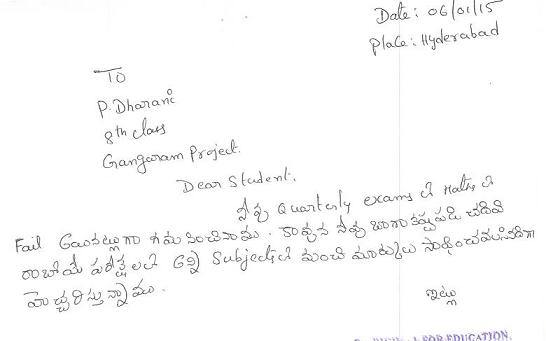 Date: 06/01/15
Place: Hyderabad
To
P. Dharani
8th class
Gangaram Project.
Dear Student.
నీవు Quarterly exams లో Maths లో
Fail అయినట్లుగా గమనించినాము. కావున నీవు బాగా కష్టపడి చదివి
రాబోయే పరీక్షలలో అన్ని Subjectsలో మంచి మార్కులు సాధించవలసినదిగా
హెచ్చరిస్తున్నాము.
ఇట్లు
FOR EDUCATION.